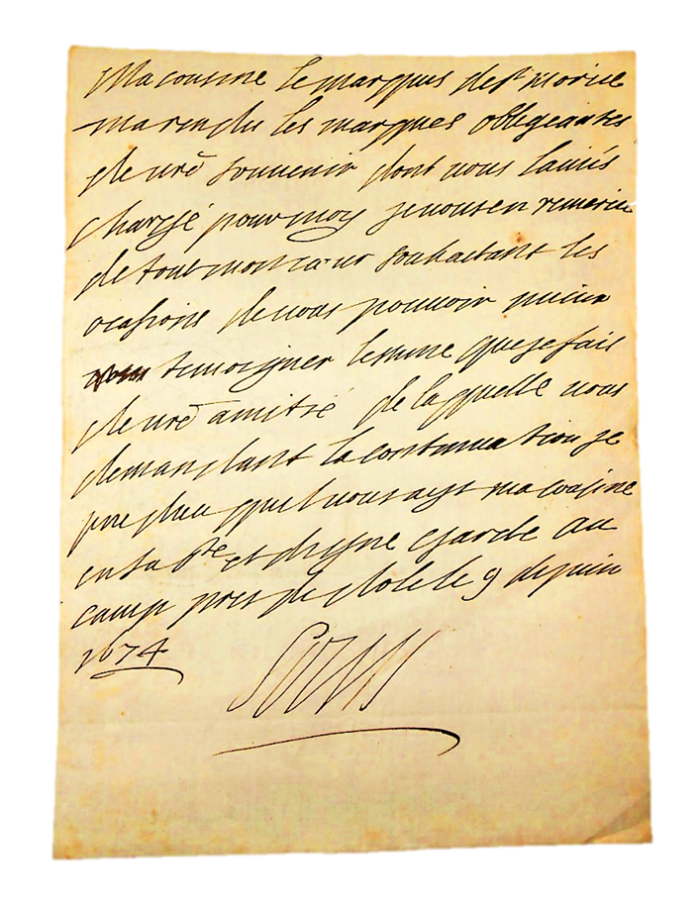 Ma cousine le marquis de st morice
ma rendu les marques obligeantes
de vrē souvenir dont vous laviés
chargé pour moy je vous en remercie
de tout mon cœur souhaitant les
ocasions de vous pouvoir mieux
temoigner lestime que je fais
de vrē amitié de laquelle vous
demandant la continuation je
prie dieu quil vous ayt ma cousine
en sa ste et digne garde au
camp pres de dole le 9 de juin
1674
Louis